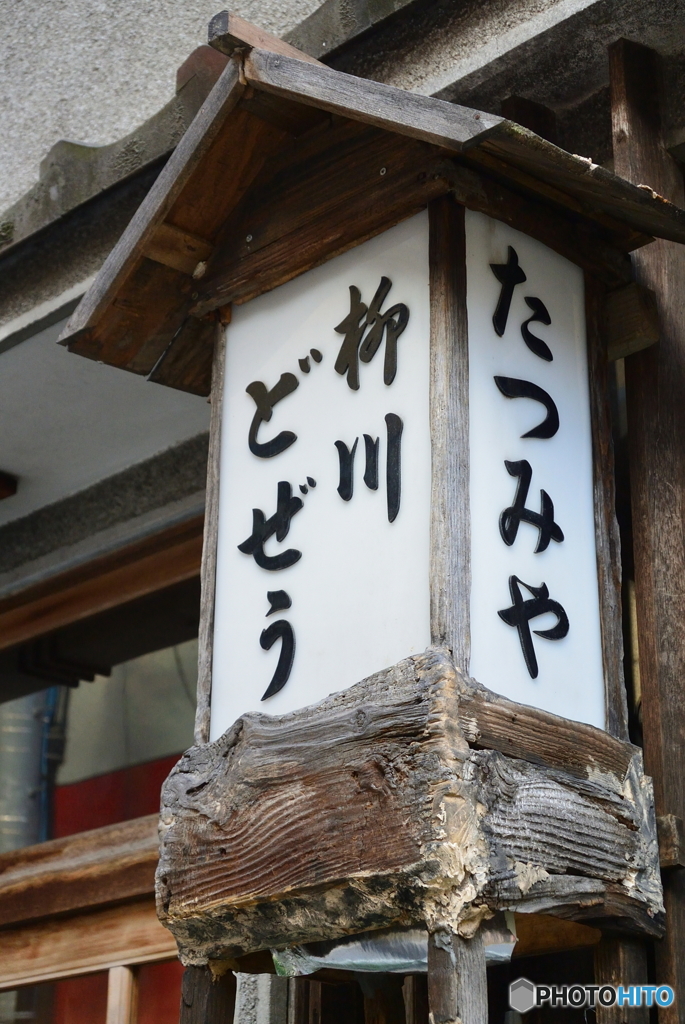 柳川
どぜう
たつみや
PHOTOHITO